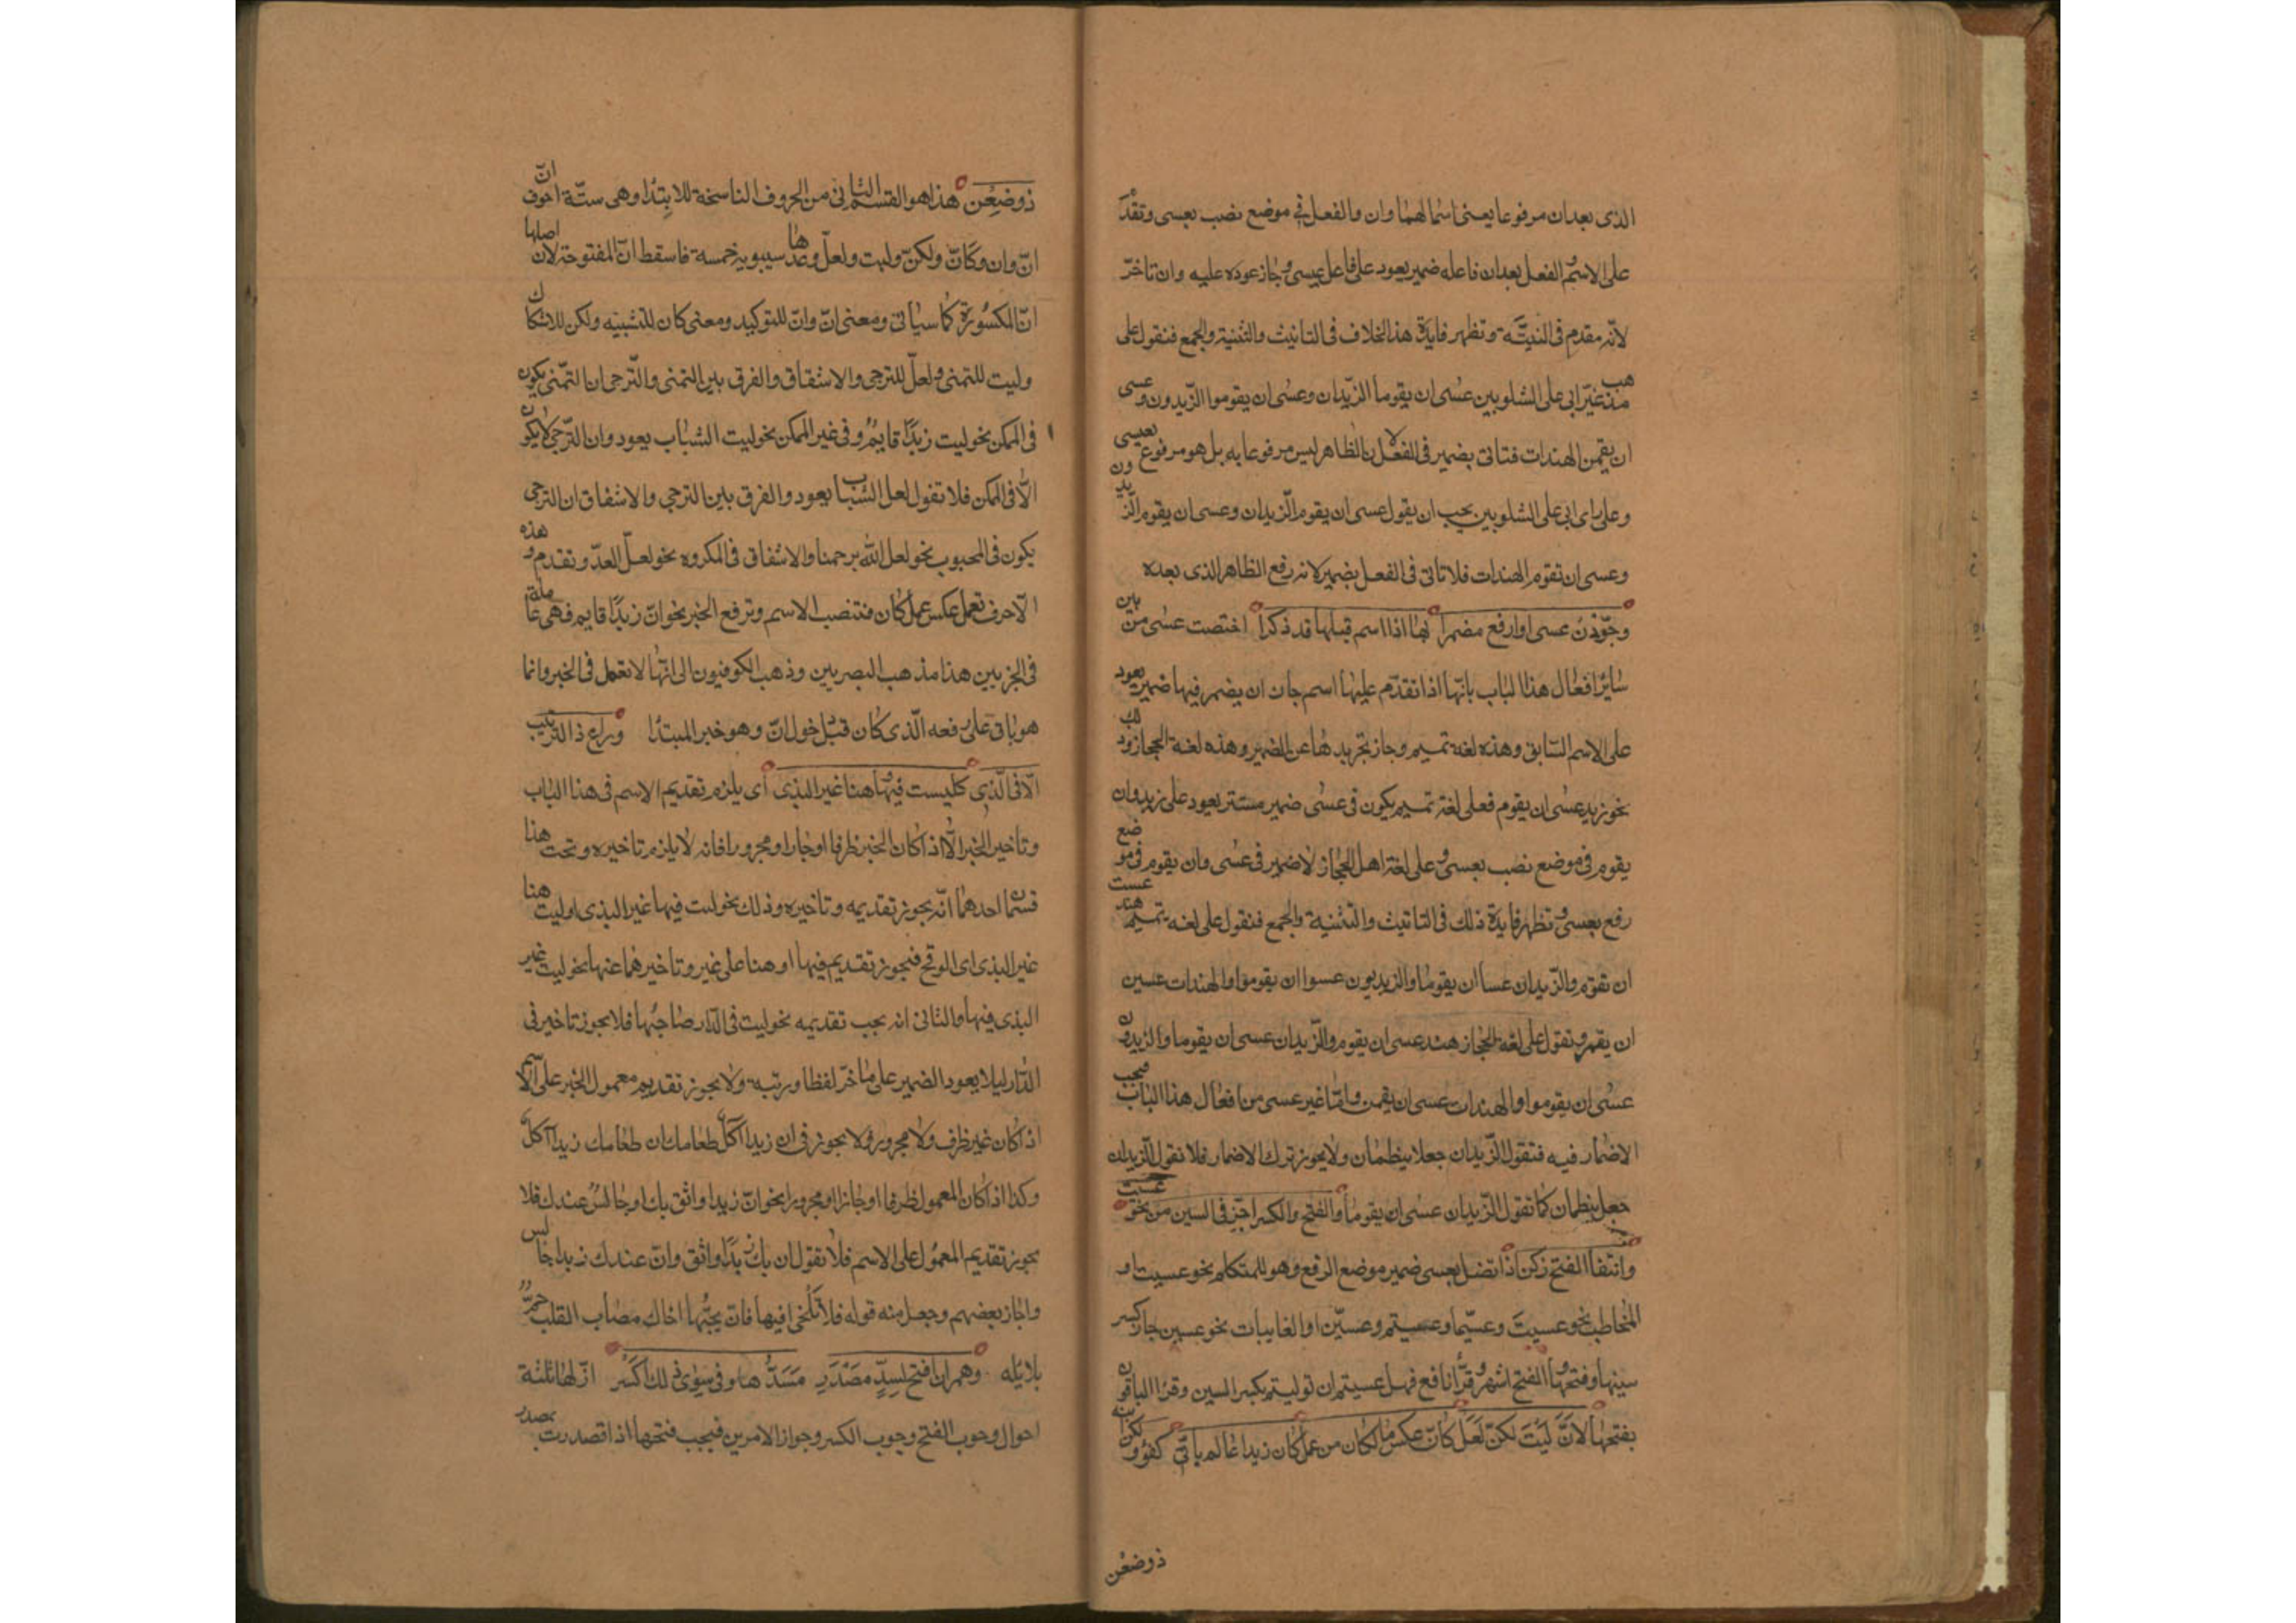 الذى بعدان مرفوعا يعنى اسما لهما وان والفعل فى موضع نصب بعسى وتقدّم
على الاسم والفعل بعدان فاعله ضمير يعود على فاعل عيسى وجاز عوده عليه وان تاخرّ
لانّه مقدم فى النيّة وتظهر فايدة هذا الخلاف فى التانيث والتثنية والجمع فنقول على
مذهب غير ابى على الشلوبين عسى ان يقوما الزّيدان وعسى ان يقوموا الزّيدون وعسى
ان يقمن الهندات فتاتى بضمير فى الفعل لان الظاهر ليس مرفوعا به بل هو مرفوع بعيسى
وعلى راى ابى على الشلوبين يجب ان يقول عسى ان يقوم الزّيدان وعسى ان يقوم الزيدون
وعسى ان تقوم الهندات فلا تاتى فى الفعل بضمير لانه رفع الظاهر الذى بعده
وجرّدن عسى اوارفع مضمرا بها اذا اسم قبلها قد ذكرا اختصت عسى من بين
سائر افعال هذا الباب بانّها اذا تقدّم عليها اسم جاز ان يضمر فيها ضمير يعود
على الاسم السّابق وهذه لغة تميم وجاز تجريدها عن الضمير وهذه لغة الحجاز وذلك
نحو زيد عسى ان يقوم فعلى لغة تميم يكون فى عسى ضمير مستتر يعود على زيد وان
يقوم فى موضع نصب بعسى وعلى لغة اهل الحجاز لا ضمير فى عسى وان يقوم فى موضع
رفع بعسى وتظهر فايدة ذلك فى التانيث والتثنية والجمع فنقول على لغة تميم هند عست
ان تقوم والزّيدان عسا ان يقوما والزيديون عسوا ان يقوموا والهندات عسين
ان يقمن وتقول على لغة الحجاز هند عسى ان يقوم والزّيدان عسى ان يقوما والزيدون
عسى ان يقوموا والهندات عسى ان يقمن وامّا غير عسى من افعال هذا الباب فيجب
الاضمار فيه فتقول الزّيدان جعلا ينظمان ولا يجوز ترك الاضمار فلا تقول الزيدان
جعل ينظمان كما تقول الزّيدان عسى ان يقوما والفتح والكسر اجز فى السين من نحو عسيت
وانتقا الفتح زكن اذا اتصل بعسى ضمير موضع الرفع وهو للمتكلم نحو عسيت او
المخاطب نحو عسيتَ وعسيتما وعسيتم وعسيتنّ او الغايبات نحو عسين جاز كسر
سينها وفتحها والفتح اشهر وقرأ نافع فهل عسيتم ان توليتم بكسر السين وقرا الباقون
بفتحها لانّ لَيْتَ لكنّ لعلّ كانّ عكس ما لكان من عمل كان زيدا عالم بانّى كفؤ ولكن ابنه
ذوضغن
ذوضغن هذا هو القسم الثانى من الحروف الناسخة للابتدا وهى ستّة احرف انّ
انّ وان وكانّ ولكنّ وليت ولعلّ وعدها سيبويه خمسة فاسقط انّ المفتوحة لان اصلها
انّ المكسورة كما سياتى ومعنى انّ وانّ للتوكيد ومعنى كان للتشبيه ولكن للاستدراك
وليت للتمنى ولعلّ للترجى والاشفاق والفرق بين التمنى والتّرجى ان التمّنى يكون
فى الممكن نحو ليت زيدًا قايم وفى غير الممكن نحو ليت الشباب يعود وان التّرجى لا يكون
الّا فى الممكن فلا تقول لعل الشباب يعود والفرق بين الترجى والاشفاق ان الترجى
يكون فى المحبوب نحو لعل الله يرحمنا والاشفاق فى المكروه نحو لعلّ العدّو تقدم وهذه
الاحرف تعمل عكس عمل كان فتنصب الاسم وترفع الخبر نحو انّ زيدًا قايم فهى عاملة
فى الجزيين هذا مذهب البصريين وذهب الكوفيون الى انها لا تعمل فى الخبر وانما
هو باق على رفعه الّذى كان قبل دخول انّ وهو خبر المبتدا وراع ذا الترتيب
الّا فى الّذى كليت فيها او هنا غير البذى اى يلزم تقديم الاسم فى هذا الباب
وتاخير الخبر الّا اذا كان الخبر ظرفا او جارا ومجرورا فانه لا يلزم تاخيره وتحت هذا
قسمان احدهما انّه يجوز تقديمه وتاخيره وذلك نحو ليت فيها غير البذى او ليت هنا
غير البذى اى الوقح فيجوز تقديم فيها او هنا على غير وتاخيرهما عنها نحو ليت غير
البذى فيها والثانى انه يجب تقديمه نحو ليت فى الدّار صاحبها فلا يجوز تاخير فى
الدّار ليلا يعود الضمير على ما خرّ لفظا ورتبه ولا يجوز تقديم معمول الخبر على الاسم
اذا كان غير ظرف ولا مجرور فلا يجوز فى ان زيدا آكل طعامك ان طعامك زيدا آكل
وكذا اذا كان المعمول ظرفا او جارا ومجرورا نحو انّ زيدا واثق بك او جالس عندك فلا
يجوز تقديم المعمول على الاسم فلا تقول ان بك زيدًا واثق وانّ عندك زيدا جالس
واجاز بعضهم وجعل منه قوله فلا تلحنى فيها فان بحبّها اخاك مصاب القلب جمّ
بلابله وهمز ان افتح لسدّ مصدر مسدّها وفى سوى ذلك اكسر انّ لها ثلثة
احوال وجوب الفتح وجوب الكسر وجواز الامرين فيجب فتحها اذا قصدرت بمصدر